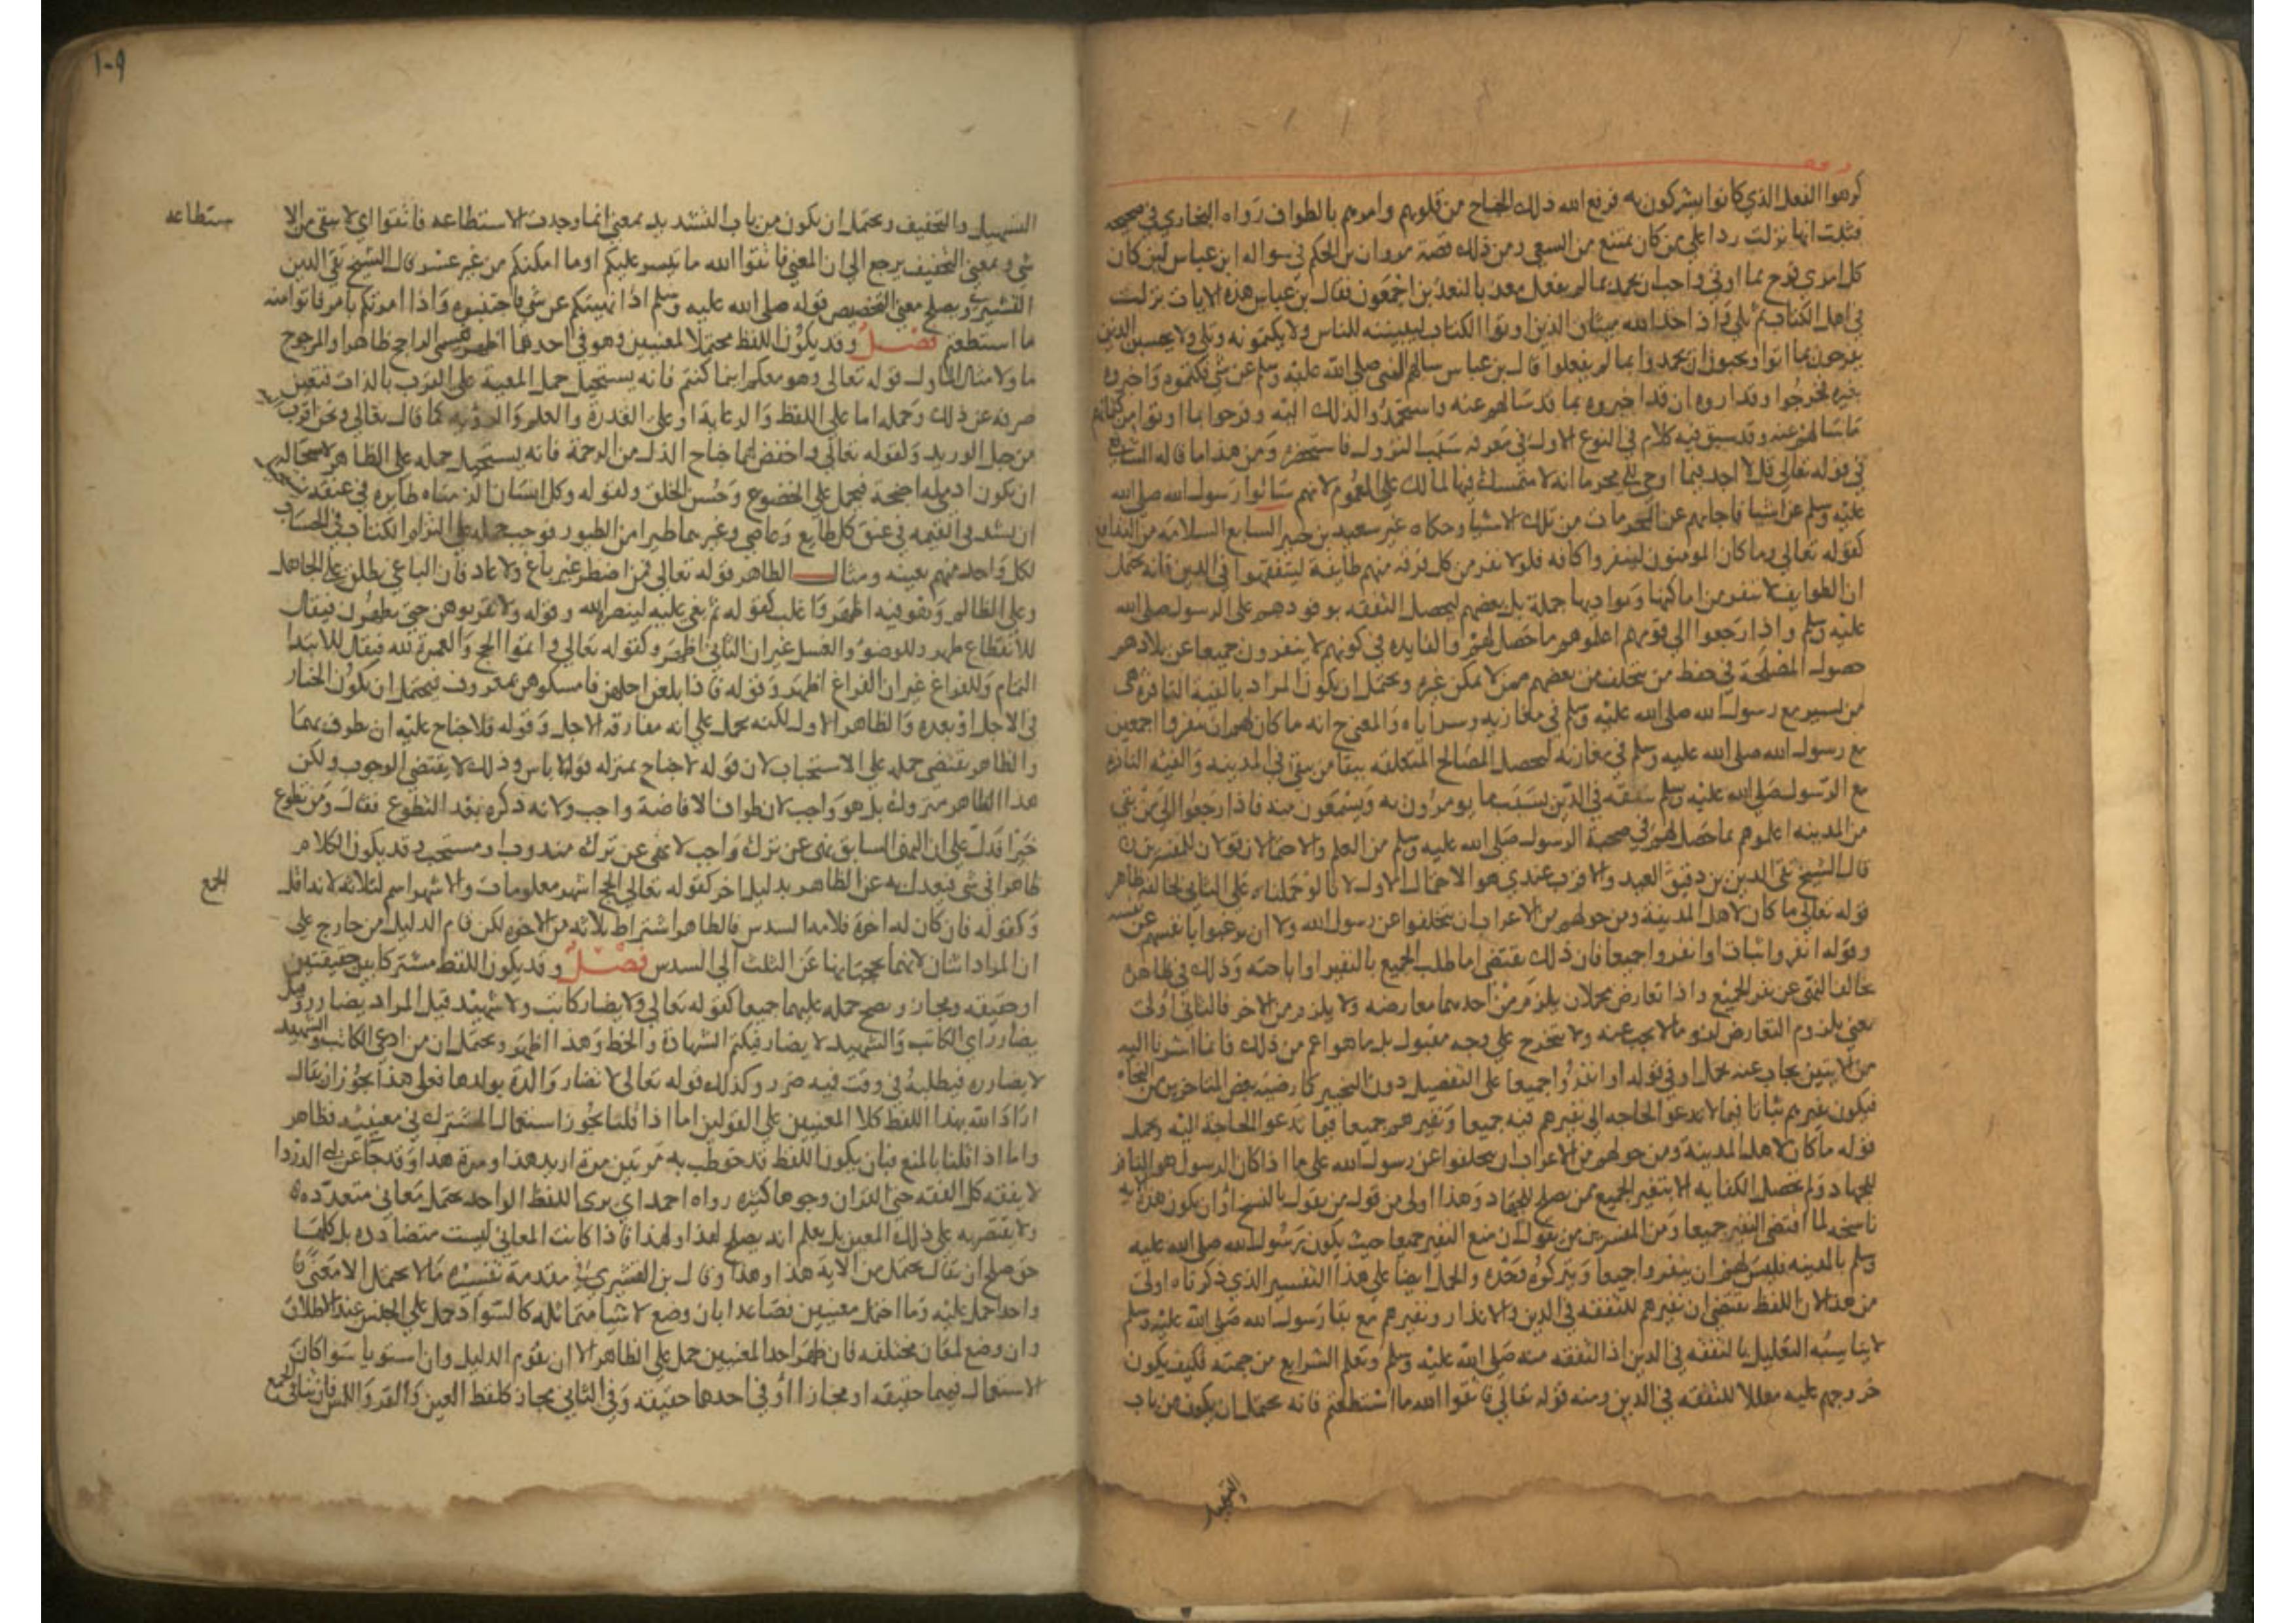 كرهوا الفعل الذي كانوا يشركون به فرفع الله ذلك الجناح من قلوبهم وامرهم بالطواف رواه البخاري في صحيحه
فثبت انها نزلت ردا على من كان يمتنع من السعي ومن ذلك قصة مروان بن الحكم في سواله ابن عباس لين كان
كل امرى فرح بما اوتي واحب ان يحمد بما لم يفعل معذبا لنعذبن اجمعون فقال بن عباس هذه الايات نزلت
في اهل الكتاب ثم تلى واذ اخذ الله ميثاق الذين اوتوا الكتاب ليبيننه للناس ولا يكتمونه وتلى ولا يحسبن الذين
يفرحون بما اتوا ويحبون ان يحمدوا بما لم يفعلوا قال بن عباس سالهم النبي صلى الله عليه وسلم عن شي فكتموه واخبروه
بغيره فخرجوا وقد اروه ان قد اخبروه بما قد سالهم عنه واستحمدوا لذلك اليه وفرحوا بما اوتوا من كتمانهم
ما سالهم عنه وقد سبق فيه كلام في النوع الاول في معرفة سبب النزول فاستحضره ومن هذا ما قاله الشافعي
في قوله تعالى قل لا اجد فيما اوحي الي محرما انه لا متمسك فيها لمالك على العموم لانهم سالوا رسول الله صلى الله
عليه وسلم عن اشيا فاجابهم عن المحرمات من تلك الاشيا وحكاه غير سعيد بن جبير السابع السلامة من التدافع
كقوله تعالى وما كان المومنون لينفروا كافه فلولا نفر من كل فرقة منهم طايفة ليتفقهوا في الدين فانه يحتمل
ان الطوايف لا تنفر من اماكنها وبواديها جملة بل بعضهم ليحصل التفقه بوفودهم على الرسول صلى الله
عليه وسلم واذا رجعوا الى قومهم اعلموهم بما حصل لهم والفايده في كونهم لا ينفرون جميعا عن بلادهم
حصول المصلحة في حفظ من يتخلف من بعضهم ممن لا يمكن نفره ويحتمل ان يكون المراد بالفية النافرة هي
من تسير مع رسول الله صلى الله عليه وسلم في مغازيه وسراياه والمعنى ح انه ما كان لهم ان ينفروا اجمعين
مع رسول الله صلى الله عليه وسلم في مغازيه لتحصل المصالح المتعلقه ببقا من يبقى في المدينه والفيه النافره
مع الرسول صلى الله عليه وسلم تتفقه في الدين بسبب ما يومرون به ويسمعون منه فاذا رجعوا الى من بقي
من المدينه اعلموهم بما حصل لهم في صحبة الرسول صلى الله عليه وسلم من العلم والاحتمالان قولان للمفسرين
قال الشيخ تقي الدين بن دقيق العيد والاقرب عندي هو الاحتمال الاول لانا لو حملناه على الثاني لخالفه ظاهر
قوله تعالى ما كان لاهل المدينة ومن حولهم من الاعراب ان يتخلفوا عن رسول الله ولا ان يرغبوا بانفسهم عن نفسه
وقوله انفروا ثبات او انفروا جميعا فان ذلك يقتضي اما طلب الجميع بالنفير او اباحته وذلك في ظاهره
يخالف النهي عن نفر الجميع واذا تعارض محملان يلزم من احدهما معارضه ولا يلزم من الاخر فالثاني اولى
نعني بلزوم التعارض لزوما لا يجاب عنه ولا يتخرج على وجه مقبول بل ما هو اعم من ذلك فانما اشرنا اليه
من الايتين يجاب عنه بحمل او في قوله او انفروا جميعا على التفصيل دون التخيير كما رضيه بعض المتاخرين من النحاه
فيكون نفيرهم ثباتا فيما لا يدعو الحاجه الى نفيرهم فيه جميعا ونفيرهم جميعا فيما تدعو الحاجة اليه ويحمل
قوله ما كان لاهل المدينة ومن حولهم من الاعراب ان يتخلفوا عن رسول الله على ما اذا كان الرسول هو النافر
للجهاد ولم تحصل الكفايه الا بنفير الجميع ممن يصلح للجهاد وهذا اولى من قول من يقول بالنسخ او ان يكون هذه الايه
ناسخه لما اقتضى النفير جميعا ومن المفسرين من يقول ان منع النفير جميعا حيث يكون رسول الله صلى الله عليه
وسلم بالمدينه فليس لهم ان ينفروا جميعا ويتركوه وحده والحمل ايضا على هذا التفسير الذي ذكرناه اولى
من هذا لان اللفظ يقتضي ان نفيرهم للتفقه في الدين والانذار ونفيرهم مع بقا رسول الله صلى الله عليه وسلم
لا يناسبه التعليل بالتفقه في الدين اذ التفقه منه صلى الله عليه وسلم وتعلم الشرايع من جهته فكيف يكون
خروجهم عليه معللا للتفقه في الدين ومنه قوله تعالى فاتقوا الله ما استطعتم فانه يحتمل ان يكون من باب
التسهيل
١٠٩
التسهيل والتخفيف ويحتمل ان يكون من باب التشديد بمعنى انما وجدت الاستطاعه فاتقوا اي لا يبقى من الا
ستطاعه
شي وبمعنى التخفيف يرجع الى ان المعنى فاتقوا الله ما تيسر عليكم او ما امكنكم من غير عسر قال الشيخ تقي الدين
القشيري ويصلح معنى التخصيص قوله صلى الله عليه وسلم اذا نهيتكم عن شي فاجتنبوه واذا امرتكم بامر فاتوا منه
ما استطعتم فصل وقد يكون اللفظ محتملا لمعنيين وهو في احدهما اظهر فيسمى الراجح ظاهرا والمرجوح
ماولا مثال الماول قوله تعالى وهو معكم اينما كنتم فانه يستحيل حمل المعية على القرب بالذات فتعين
صرفه عن ذلك وحمله اما على الحفظ والرعاية او على القدرة والعلم والرؤيه كما قال تعالى ونحن اقرب اليه
من حبل الوريد ولقوله تعالى واخفض لهما جناح الذل من الرحمة فانه يستحيل حمله على الظاهر لاستحاله
ان يكون ادمي له اجنحة فيحمل على الخضوع وحسن الخلق ولقوله وكل انسان الزمناه طايره في عنقه يستحيل
ان يشد في القيمه في عنق كل طايع وعاصي وغيرهما طيرا من الطيور فوجب حمله على التزام الكتاب في الحساب
لكل واحد منهم بعينه ومثال الظاهر قوله تعالى فمن اضطر غير باغ ولا عاد فان الباغي يطلق على الجاهل
وعلى الظالم وهو فيه اظهر واغلب كقوله ثم بغي عليه لينصرنه الله وقوله ولا تقربوهن حتى يطهرن فيقال
للانقطاع طهر وللوضوء والغسل غير ان الثاني اظهر وكقوله تعالى واتموا الحج والعمرة لله فيقال للابتدا
التمام وللفراغ غير ان الفراغ اظهر وقوله فاذا بلغن اجلهن فامسكوهن بمعروف فيحتمل ان يكون الخيار
في الاجل او بعده والظاهر الاول لكنه يحمل على انه مفارقة الاجل وقوله فلا جناح عليه ان يطوف بهما
والظاهر يقتضي حمله على الاستحباب لان قوله لا جناح بمنزله قوله لا باس وذلك لا يقتضي الوجوب ولكن
هذا الظاهر متروك بل هو واجب لان طواف الافاضة واجب ولانه ذكره بعد التطوع فقال ومن تطوع
خيرا فدل على ان النهي السابق نهي عن ترك واجب لا نهي عن ترك مندوب او مستحب وقد يكون الكلام
ظاهرا في شي فيعدل به عن الظاهر بدليل اخر كقوله تعالى الحج اشهر معلومات والاشهر اسم لثلاثه لانه اقل
الجمع
وكقوله فان كان له اخوة فلامه السدس فالظاهر اشتراط ثلاثه من الاخوه لكن قام الدليل من خارج على
ان المراد اثنان لانهما يحجبانها عن الثلث الى السدس فصل وقد يكون اللفظ مشتركا بين حقيقتين
او حقيقه ومجاز ويصح حمله عليهما جميعا كقوله تعالى ولا يضار كاتب ولا شهيد قيل المراد يضارر وقيل
يضارر اي الكاتب والشهيد لا يضار فيكتم الشهادة والخط وهذا اظهر ويحتمل ان من ادعى الكاتب والشهيد
لا يضارره فيطلبه في وقت فيه ضرر وكذلك قوله تعالى لا تضار والدة بولدها فعلى هذا يجوز ان يقال
اراد الله بهذا اللفظ كلا المعنيين على القولين اما اذا قلنا يجوز استعمال المشترك في معنييه فظاهر
واما اذا قلنا بالمنع فبان يكون اللفظ قد خوطب به مرتين مرة اريد هذا ومرة هذا وقد جا عن ابي الدردا
لا يفقه كل الفقه حتى القران وجوها كثيره رواه احمد اي يرى اللفظ الواحد يحتمل معاني متعدده
ولا يقتصر به على ذلك المعين بل يعلم انه يصلح لهذا ولهذا فاذا كانت المعاني ليست متضادده بل كلها
حق صلح ان يقال يحتمل من الاية هذا وهذا وقال بن القشيري في مقدمة تفسيره ما لا يحتمل الا معنى
واحدا حمل عليه وما احتمل معنيين فصاعدا بان وضع لاشيا متماثله كالسواد حمل على الجنس عند الاطلاق
وان وضع لمعان مختلفه فان ظهر احد المعنيين حمل على الظاهر الا ان يقوم الدليل وان استويا سوا كان
الاستعمال فيهما حقيقه او مجازا او في احدها حقيقه وفي الثاني مجاز كلفظ العين والقرو واللمس فان تنافى الجمع